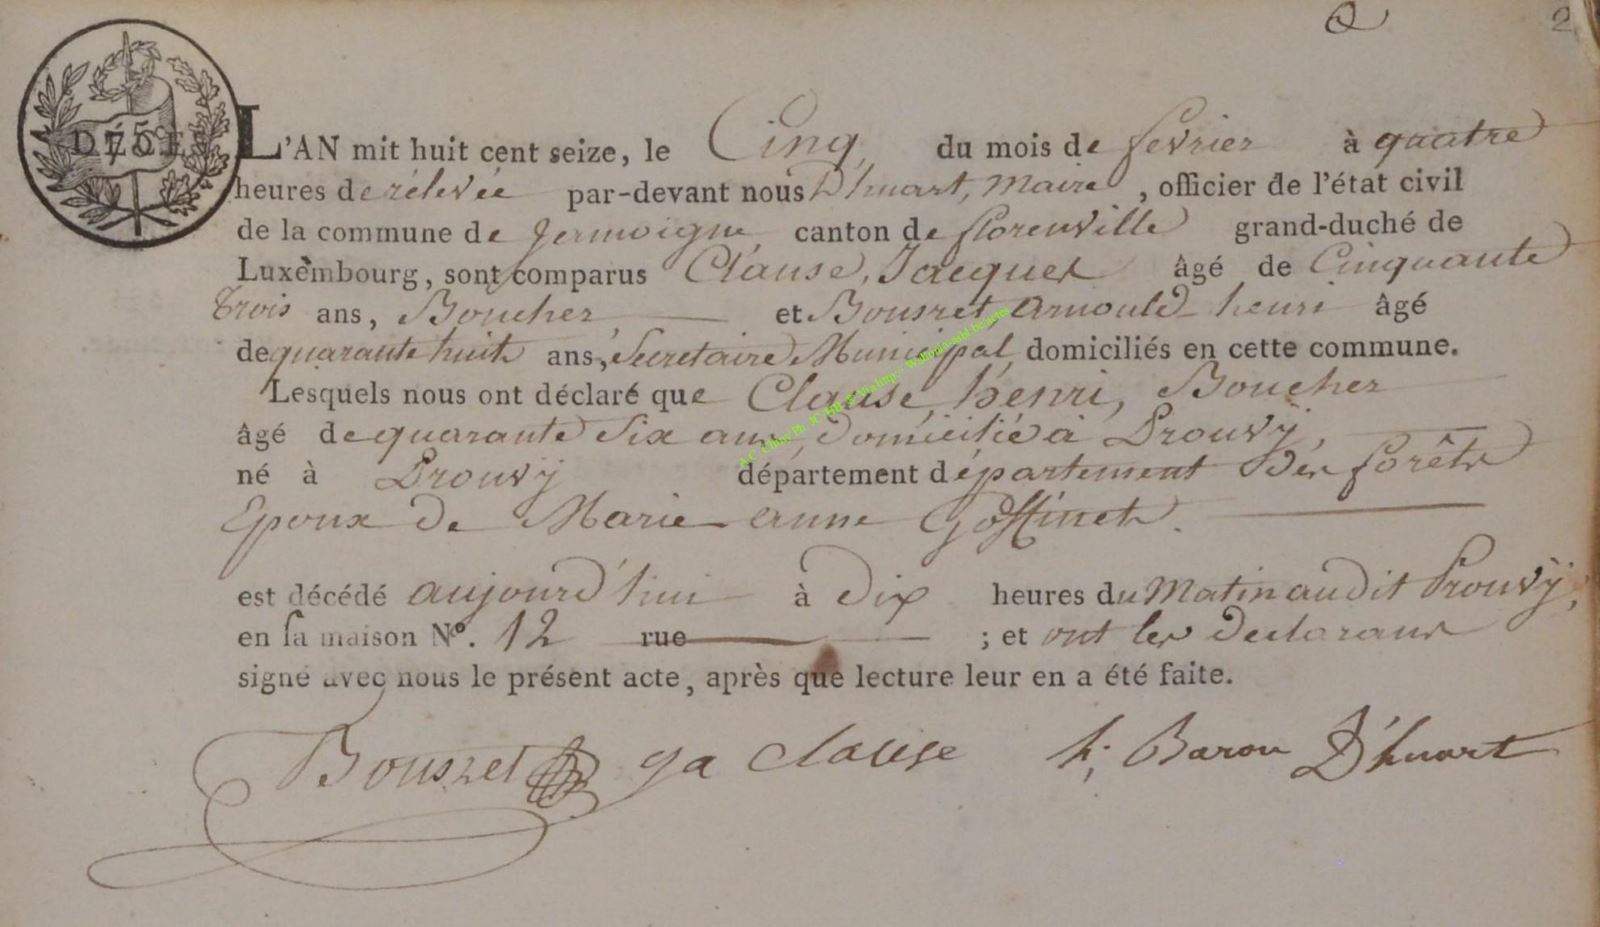 2
L'AN mil huit cent seize, le Cinq du mois de fevrier à quatre
heures de rélevée par-devant nous D'huart, Maire, officier de l'état civil
de la commune de Jamoigne canton de florenville grand-duché de
Luxembourg, sont comparus Clause, Jacques âgé de Cinquante
Trois ans, Boucher et Bousret, Arnould henri âgé
de quarante huit ans, Secretaire Municipal, domiciliés en cette commune.
Lesquels nous ont déclaré que Clause, henri, Boucher
âgé de quarante Six ans, domicilié à Prouvÿ,
né à Prouvÿ département département Des forêts
Epoux de Marie anne Goffinet.
est décédé aujourd'hui à Dix heures du Matin audit Prouvÿ,
en sa maison N°. 12 rue ; et ont les declarans
signé avec nous le présent acte, après que lecture leur en a été faite.
Bousret ja clause h; Baron D'huart